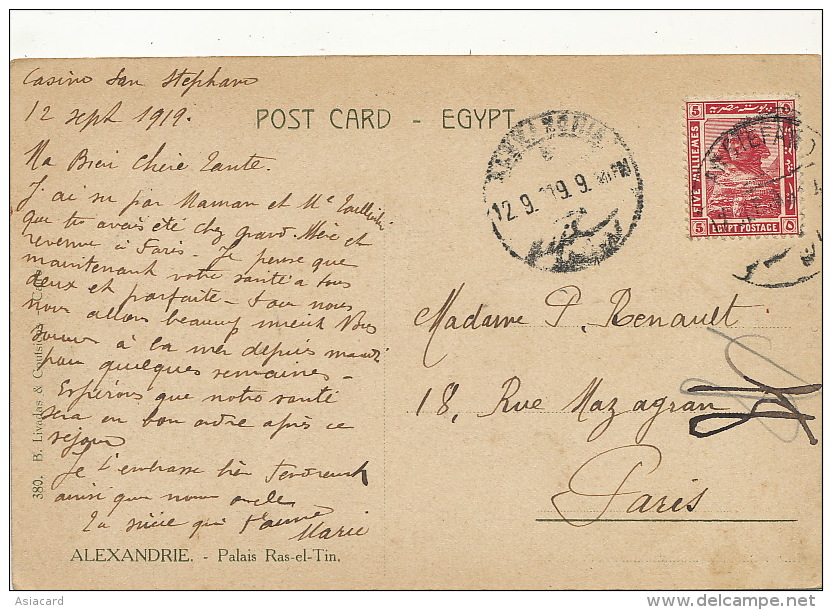 Casino San Stephano
12 sept 1919.
POST CARD - EGYPT
Ma Bien Chère Tante.
J'ai su par Maman et
que tu avais été chez grand Mère et
revenue à Paris - Je pense que
maintenant votre santé à tous
deux est parfaite -
nous allons beaucoup mieux
sommes à la mer depuis
pour quelques semaines -
Espérons que notre santé
sera en bon ordre après ce
séjour
Je t'embrasse bien tendrement
ainsi que mon oncle
Ta nièce qui t'aime
Marie
ALEXANDRIE. - Palais Ras-el-Tin.
380. B. Livadas & Coutsicos
12.9.19.9.
5 5
FIVE MILLIEMES
EGYPT POSTAGE
5 ٥
Madame P. Renault
18, Rue Mazagran
Paris
Asiacard
www.delcampe.net